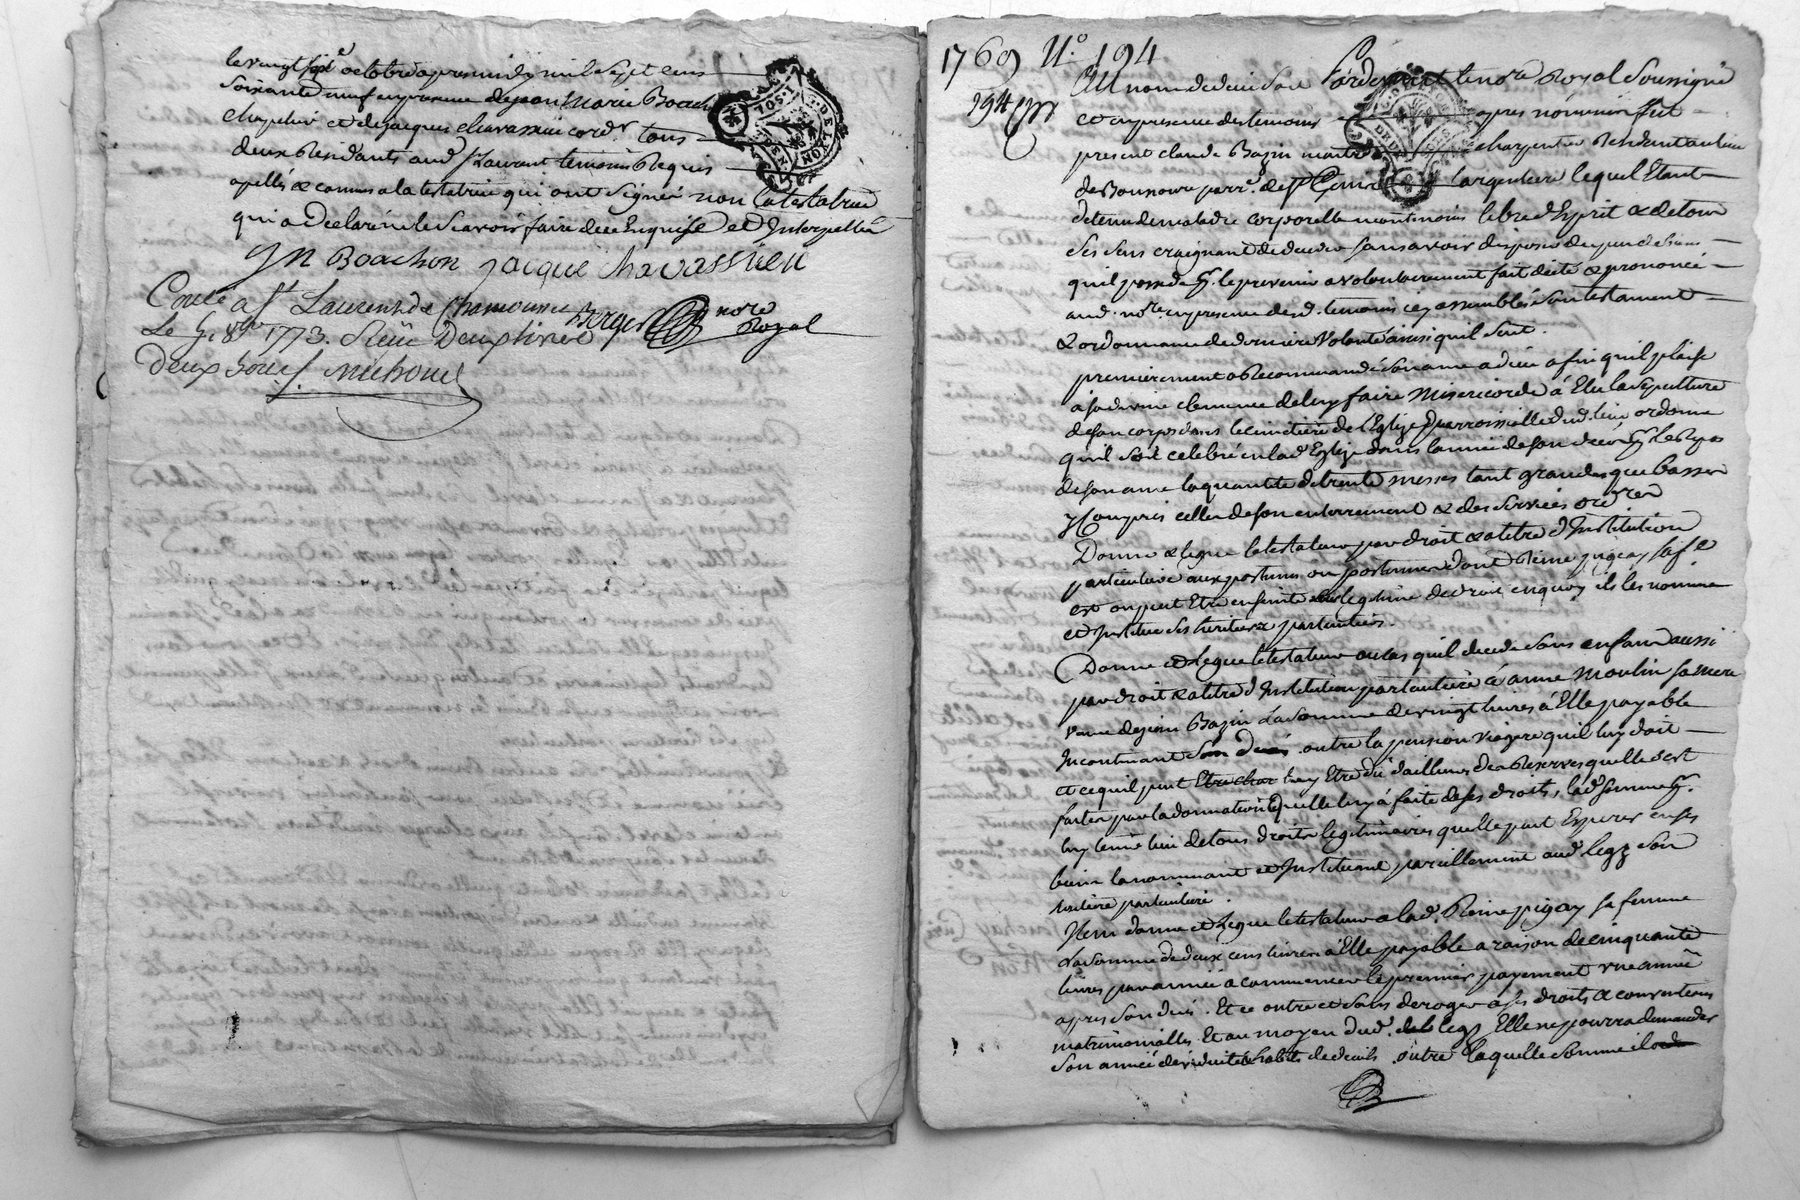 le vingt sept.e octobre apres midy mil sept cens
soixante neuf en presence de jean Marie Boachon
chapelier et de jacques chavassieu cord.r tous
deux Residants aud. st Laurent temoins Requis
apellés & connus a la testatrice qui ont signé non la testatrice
qui a Declaré ne le scavoir faire de ce Enquise et Interpellée
JM Boachon jacque chavassieu
Conlé a st Laurent de Chamousset Berger nore
Royal
Le 1773. Reçu
Deux sous
1769 N.o 194
194
Au nom de dieu soit Pardevant le no.re Royal soussigné
et en presence des temoins apres nommés fut
present claude Bazin maitre charpentier Residant au lieu
de parr.e de l'argentiere lequel Etant
detenu de maladie corporelle neantmoins libre d'Esprit & de tous
ses sens craignant de deceder sans avoir disposé du peu de biens
qu'il possede p.r le prevenir a volontairement fait dicté & prononcé
aud. no.re en presence desd. temoins cy assemblés son testament
& ordonnance de derniere volonté ainsi qu'il suit.
premierement a Recommandé son ame a dieu a fin qu'il plaise
a sa divine clemence de luy faire Misericorde a Elu la sepulture
de son corps dans le cimetiere de l'Eglise parroissialle dud. lieu ordonne
qu'il soit celebré en lad. Eglise dans l'année de son deces p.r le Repos
de son ame la quantité de trente messes tant grandes que basses
y Compris celles de son enterrement & des services ord.res
Donne & legue le testateur par droit & a titre d'Institution
particuliere aux postumes ou postumes dont Reine pigay sa f.e
est ou peut Etre enceinte leur legitime de droit en quoy il les nomme
et Institue ses heritiers particuliers.
Donne et legue le testateur au cas qu'il decede sans enfans aussi
par droit & a titre d'Institution particuliere a anne Moulin sa mere
veuve de jean Bazin La somme de vingt livres a Elle payable
Incontinant son deces outre la pension viagere qu'il luy doit
et ce qu'il peut luy Etre dû d'ailleurs des Reserves quelle s'est
faites par la donnation quelle luy a faite de ses droits, lad. somme p.r
luy tenir lieu de tous droits legitimaires quelle peut Esperer en ses
biens la nommant et Instituant pareillement aud. legs son
heritiere particuliere.
Item donne et legue le testateur a lad. Reine pigay sa femme
La somme de deux cens livres a Elle payable a raison de cinquante
livres par année a commencer le premier payement une année
apres son deces. Et ce outre et sans deroger a ses droits & conventions
matrimonialles Et au moyen dud. legs Elle ne pourra demander
son année de viduité & habits de deuils outre laquelle somme il